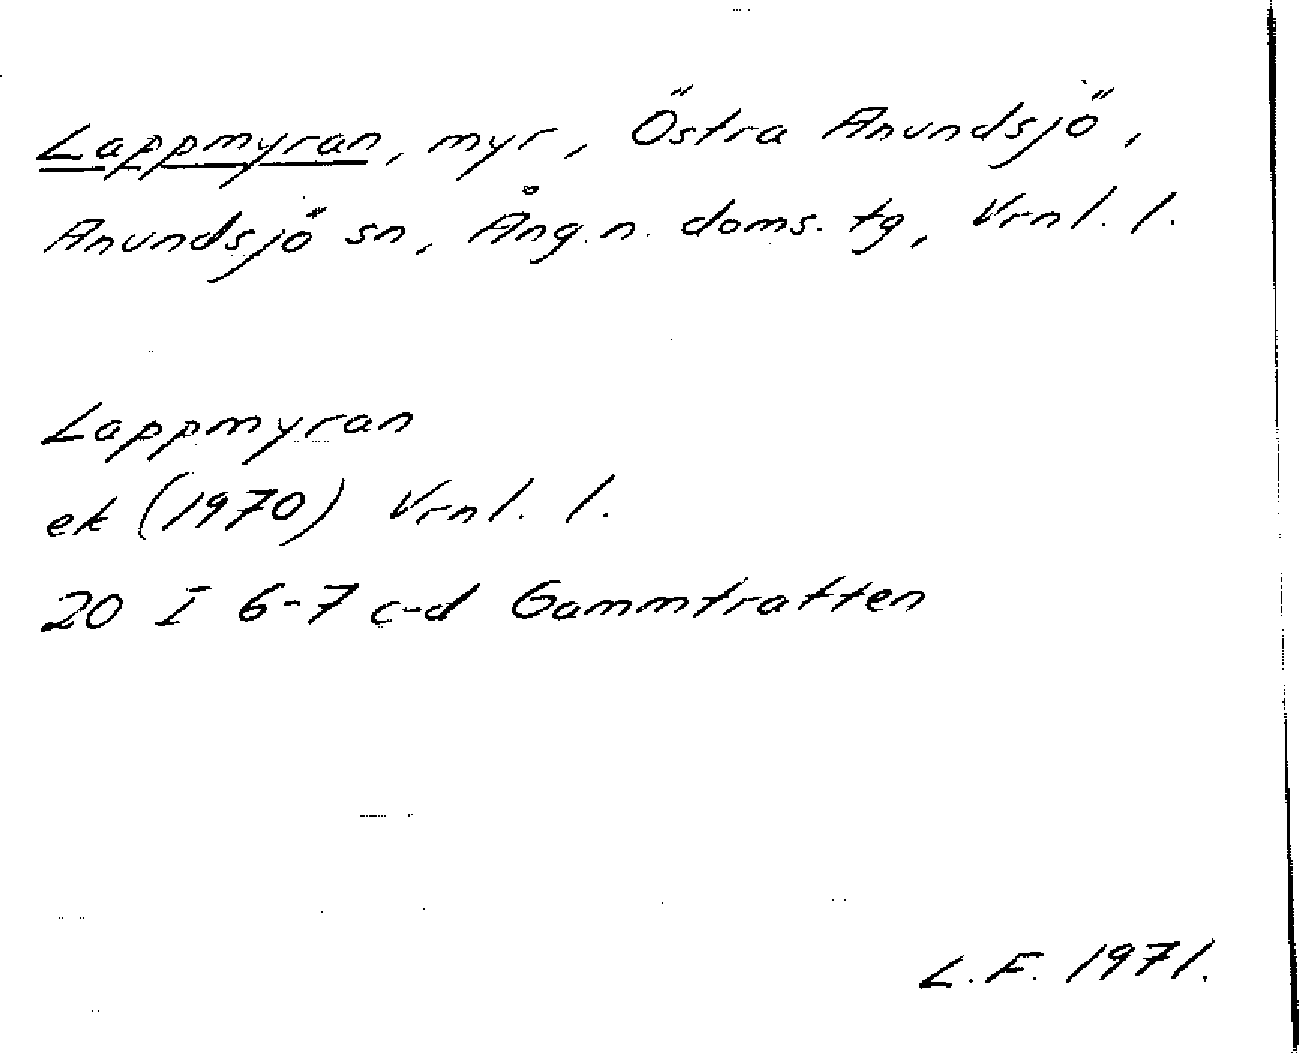 Lappmyran, myr, Östra Anundsjö,
Anundsjö sn, Ång. n. doms. tg, Vrnl. l.
Lappmyran
ek (1970) Vrnl. l.
20 I 6-7 c-d Gammtratten
L. F. 1971.